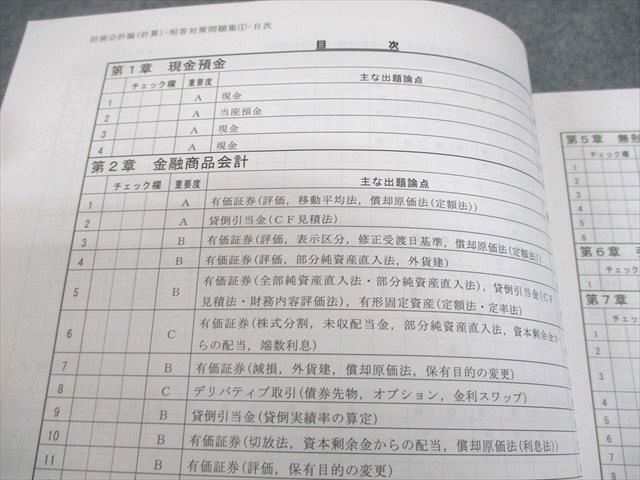 財務会計論(計算)・短答対策問題集①・目次
目 次
第1章 現金預金
チェック欄 重要度 主な出題論点
1 A 現金
2 A 当座預金
3 A 現金
4 A 現金
第2章 金融商品会計
チェック欄 重要度 主な出題論点
1 A 有価証券(評価，移動平均法，償却原価法(定額法))
2 A 貸倒引当金(CF見積法)
3 B 有価証券(評価，表示区分，修正受渡日基準，償却原価法(定額法))
4 B 有価証券(評価，部分純資産直入法，外貨建)
5 B 有価証券(全部純資産直入法・部分純資産直入法)，貸倒引当金(CF
見積法・財務内容評価法)，有形固定資産(定額法・定率法)
6 C 有価証券(株式分割，未収配当金，部分純資産直入法，資本剰余金か
らの配当，端数利息)
7 B 有価証券(減損，外貨建，償却原価法，保有目的の変更)
8 C デリバティブ取引(債券先物，オプション，金利スワップ)
9 B 貸倒引当金(貸倒実績率の算定)
10 B 有価証券(切放法，資本剰余金からの配当，償却原価法(利息法))
11 B 有価証券(評価，保有目的の変更)
第5章 無形
チェック欄
1
2
3
4
5
6
第6章
チェック
1
第7章
チェック
1
2
3
4
5
6
7
8